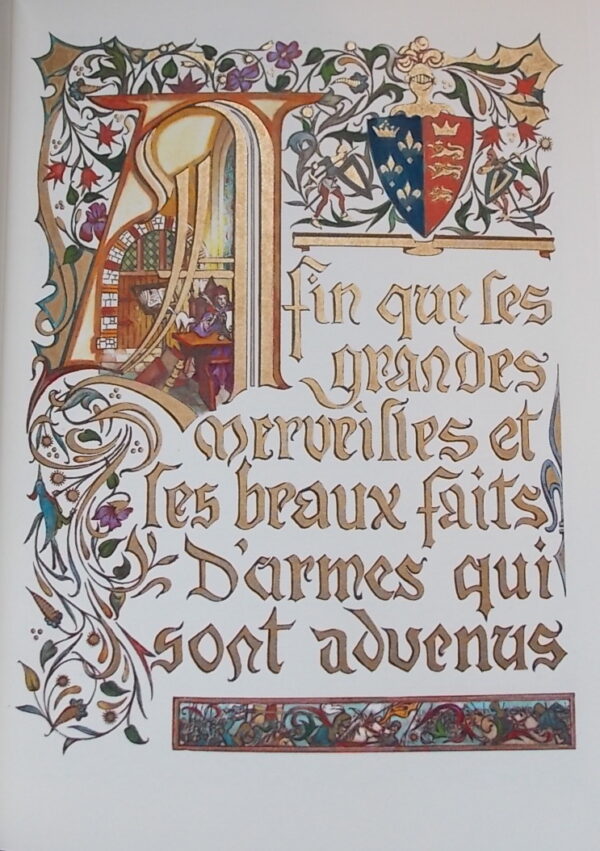 Afin que les
grandes
merveilles et
les beaux faits
D'armes qui
sont advenus